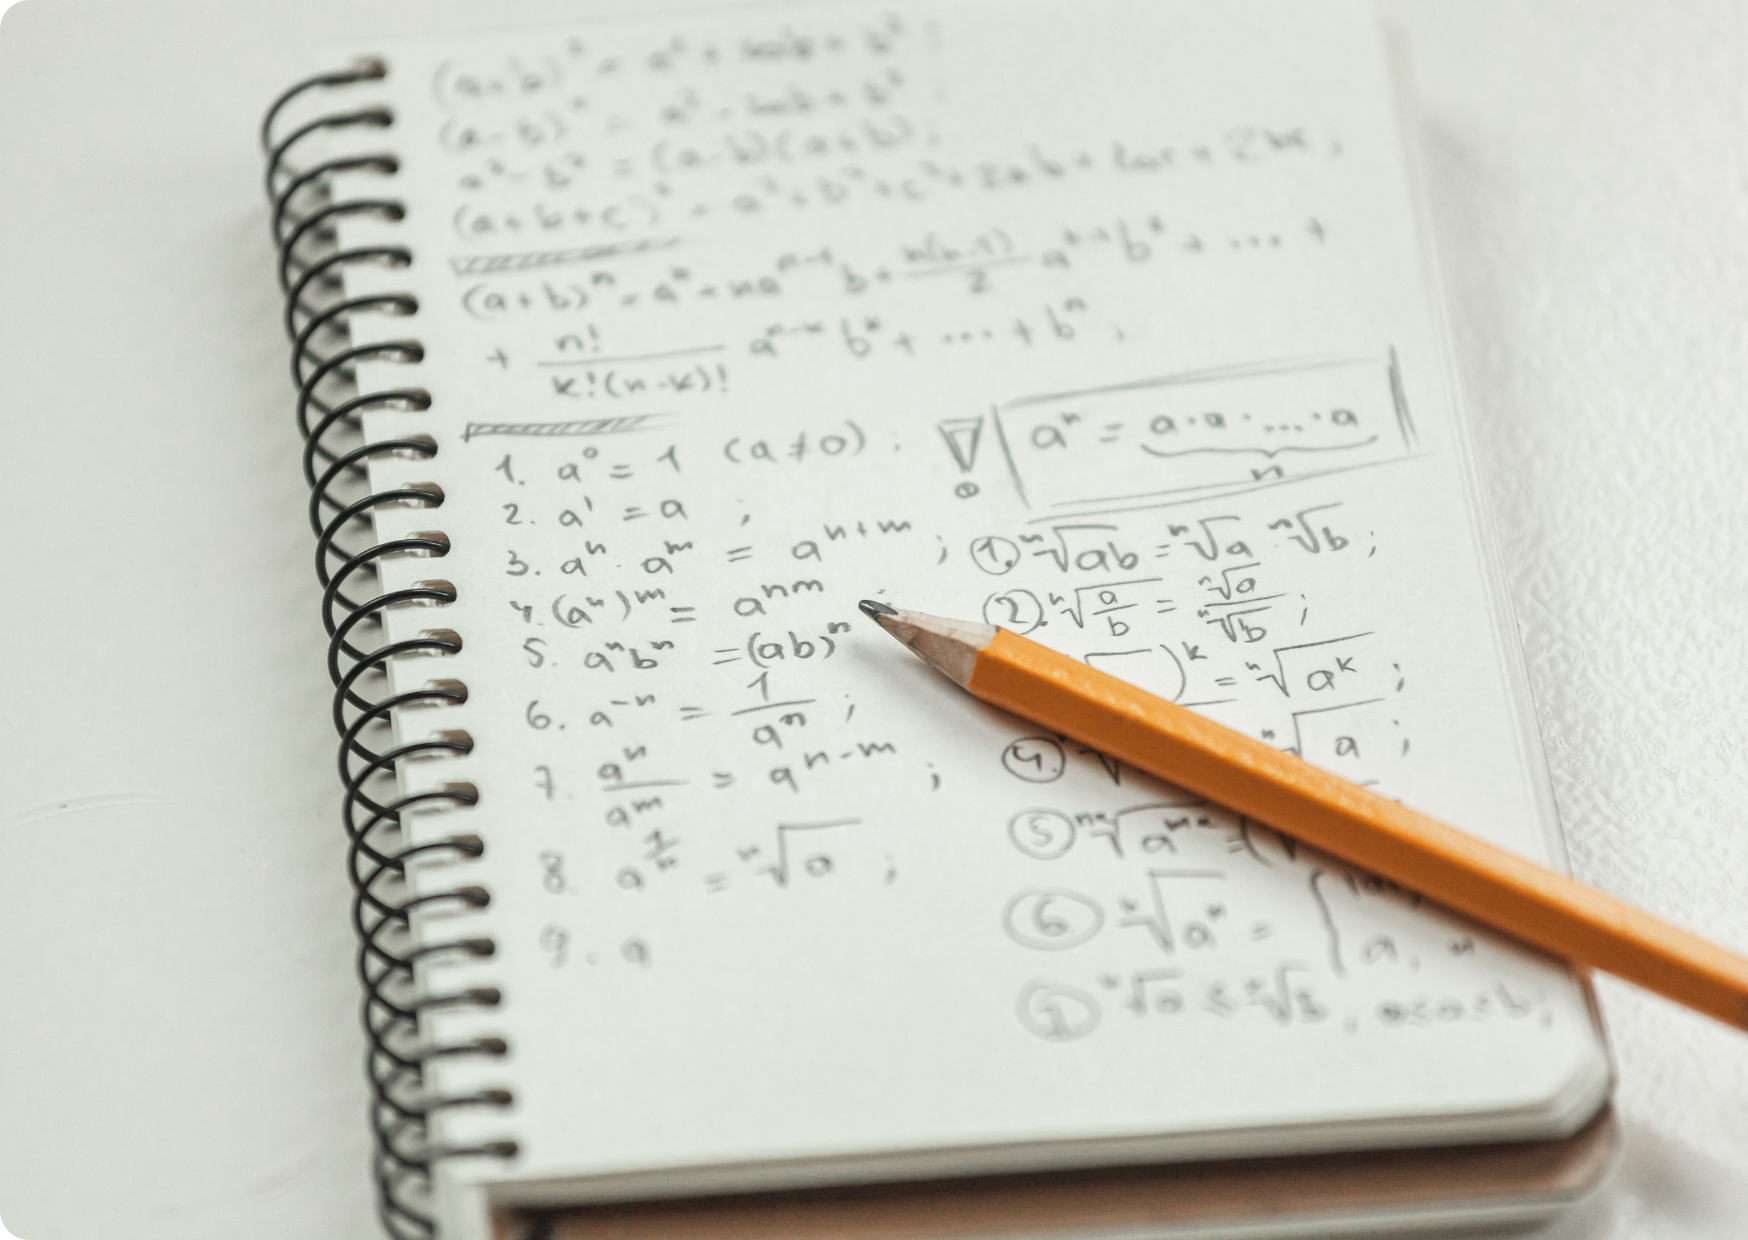 (a+b)² = a² + 2ab + b²;
(a-b)² = a² - 2ab + b²;
a² - b² = (a-b)(a+b);
(a+b+c)² = a² + b² + c² + 2ab + 2ac + 2bc;
(a+b)ⁿ = aⁿ + naⁿ⁻¹b + n(n-1)/2 aⁿ⁻²b² + ... +
+ n!/k!(n-k)! aⁿ⁻ᵏ bᵏ + ... + bⁿ;
aⁿ = a·a·...·a
n
1. a⁰ = 1 (a≠0);
2. a¹ = a ;
3. aⁿ · aᵐ = aⁿ⁺ᵐ ;
4. (aⁿ)ᵐ = aⁿᵐ
5. aⁿbⁿ = (ab)ⁿ
6. a⁻ⁿ = 1/aⁿ ;
7. aⁿ/aᵐ = aⁿ⁻ᵐ ;
8. a^(1/n) = ⁿ√a ;
9. a
1. ⁿ√ab = ⁿ√a · ⁿ√b ;
2. ⁿ√(a/b) = ⁿ√a/ⁿ√b ;
)ᵏ = ⁿ√aᵏ ;
4. √a ;
5 √a = (
6 √aⁿ = { |a|,
a, n
7 ⁿ√a ≤ ⁿ√b , 0≤a≤b;